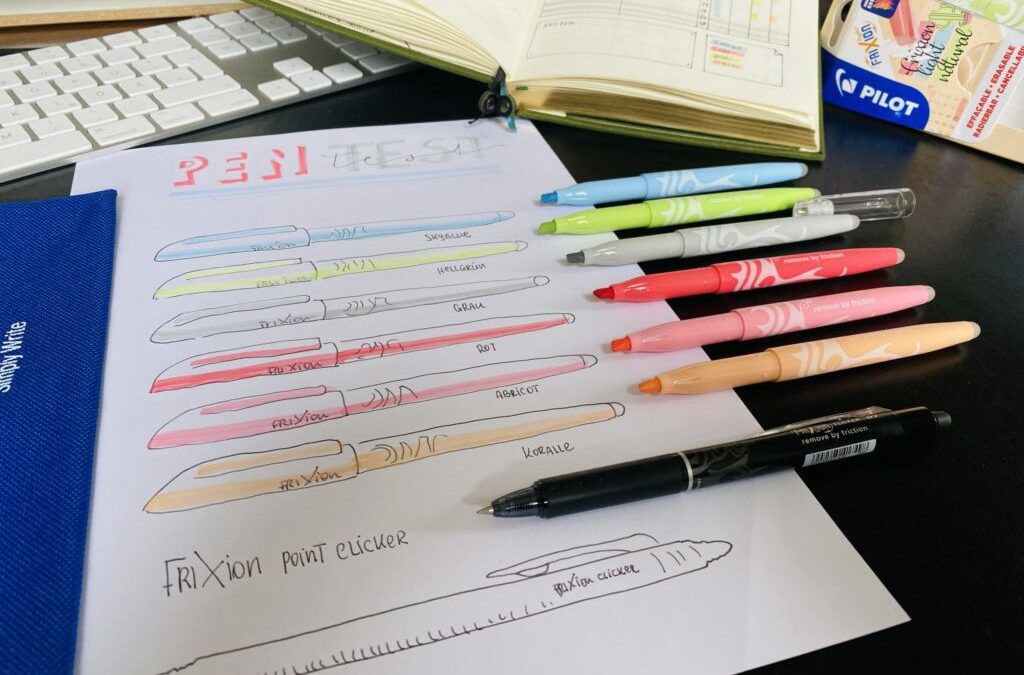 REVIEW
FriXion
Frixion
light
natural
PILOT
EFFAÇABLE • ERASABLE
RADIERBAR • CANCELLABILE
Simply Write
PEN TEST
FRIXION
SKYBLUE
FRIXION
HELLGRÜN
FRIXION
GRAU
FRIXION
ROT
FRIXION
ABRICOT
FRIXION
KORALLE
remove by friction
remove by friction
remove by friction
FRIXION POINT CLICKER
FRIXION CLICKER